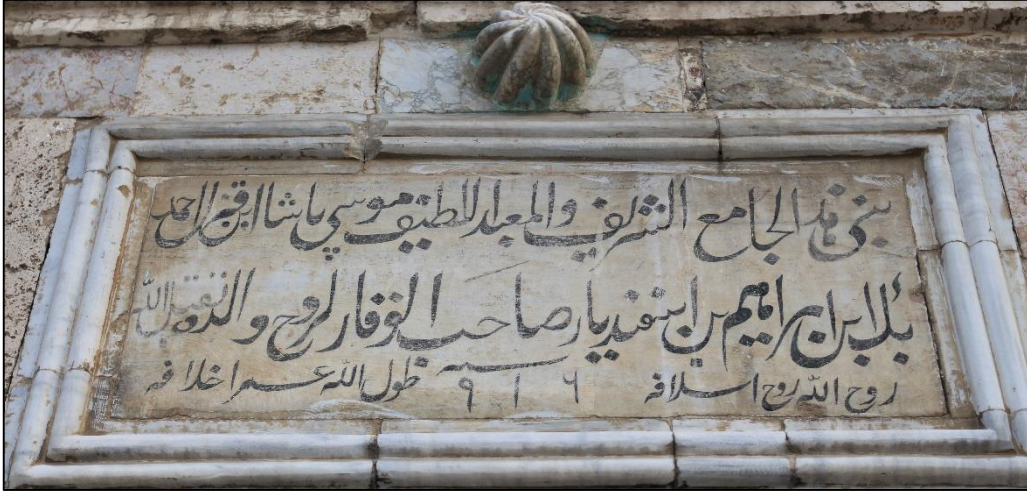 بنى هذا الجامع الشريف والمعبد اللطيف موسى پاشا ابن قزل احمد
بك ابن ابراهيم بن ابنفنديار صاحب الوقار لروح والده تقبل الله
روح الله روح اسلافه سنه ٩١٦ طول الله عمر اخلافه